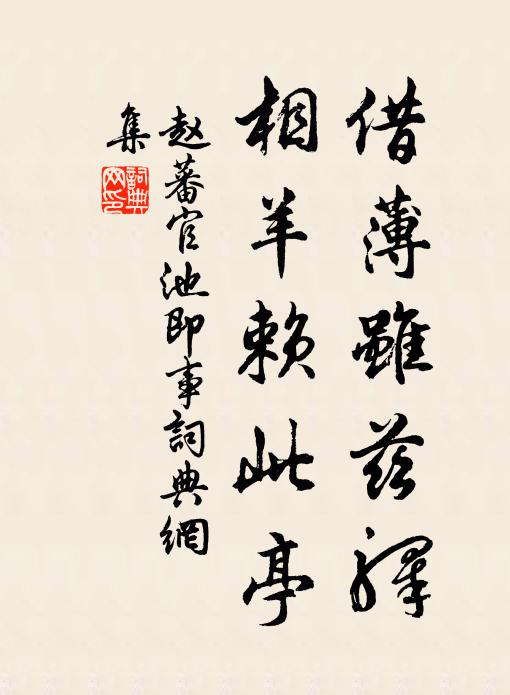 借薄雖茲驛
相羊賴此亭
赵蕃官池即事詞典網
集
詞典網印